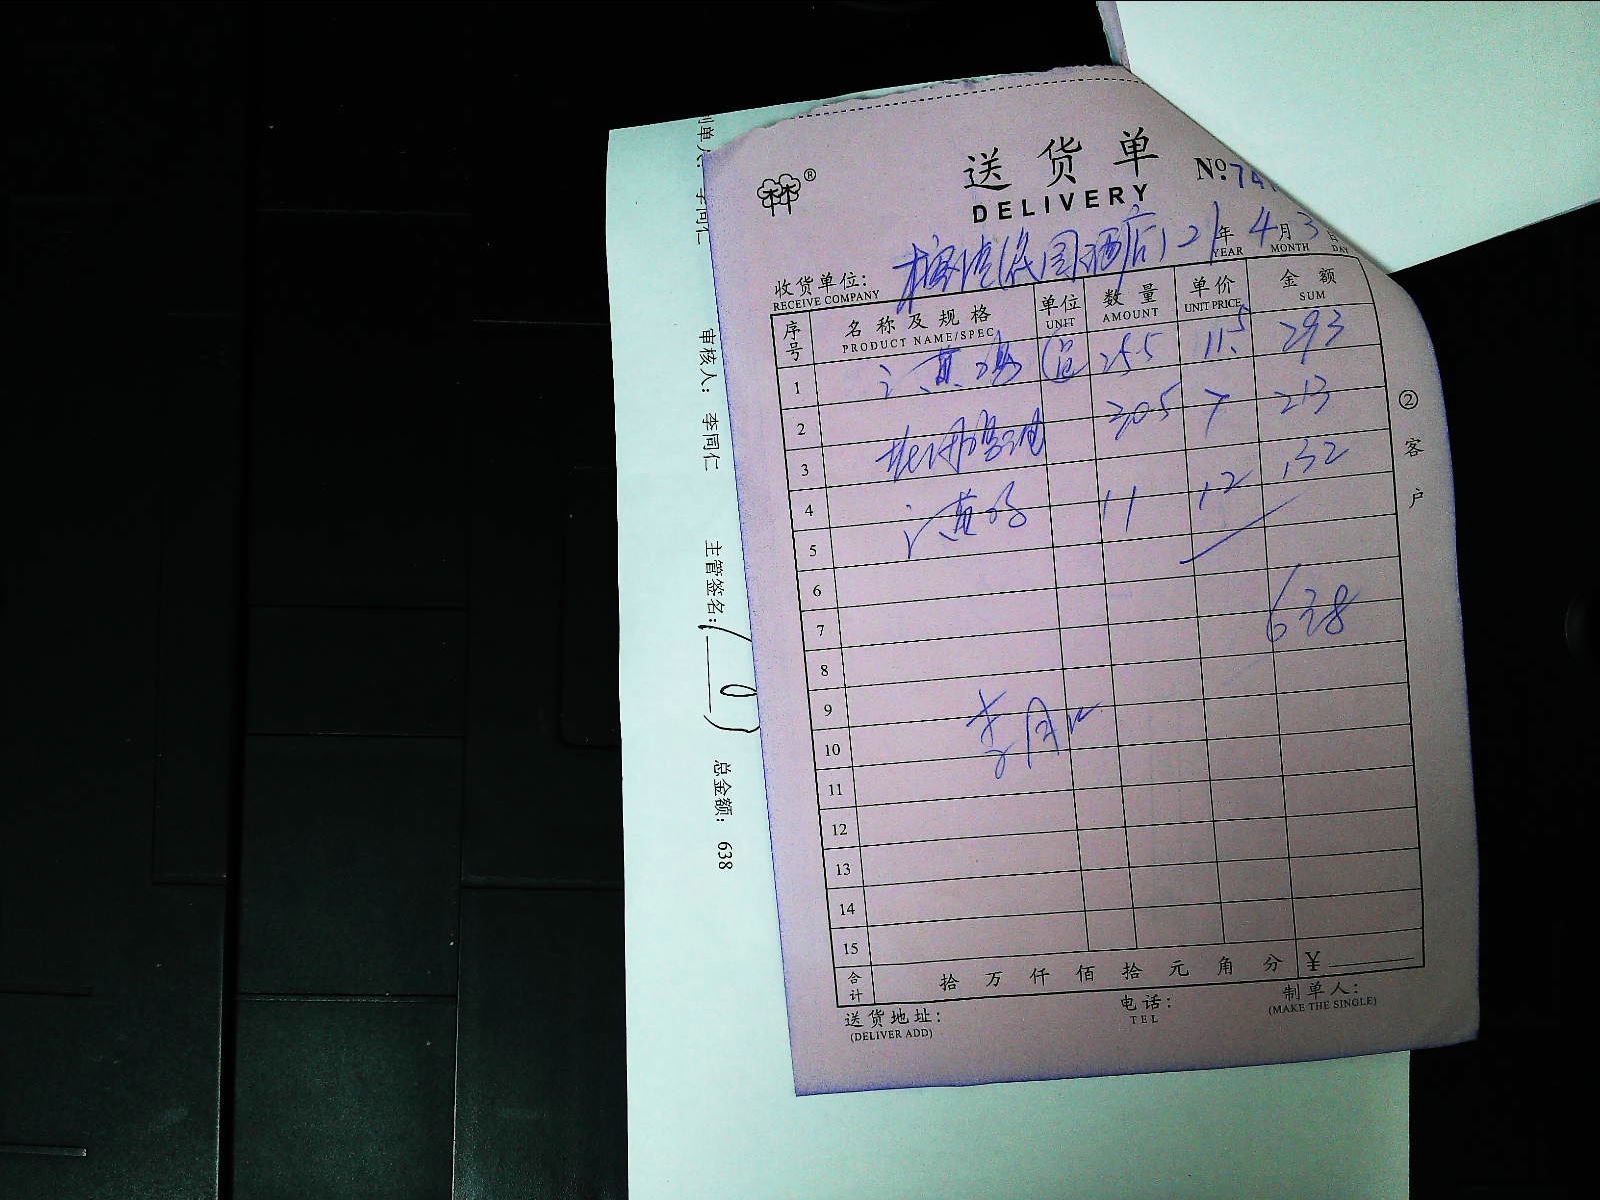 送货单
DELIVERY
№ 74
收货单位： 酒店 121年4月3日
RECEIVE COMPANY YEAR MONTH DAY
序号 名称及规格 单位 数量 单价 金额
PRODUCT NAME/SPEC UNIT AMOUNT UNIT PRICE SUM
1 25.5 11.5 293
2 30.5 7 213
3
4 11 12 132
5
6
7 638
8
9
10
11
12
13
14
15
合计 拾 万 仟 佰 拾 元 角 分 ¥
送货地址： 电话： 制单人：
(DELIVER ADD) TEL (MAKE THE SINGLE)
②客户
审核人： 李同仁 主管签名： 总金额： 638